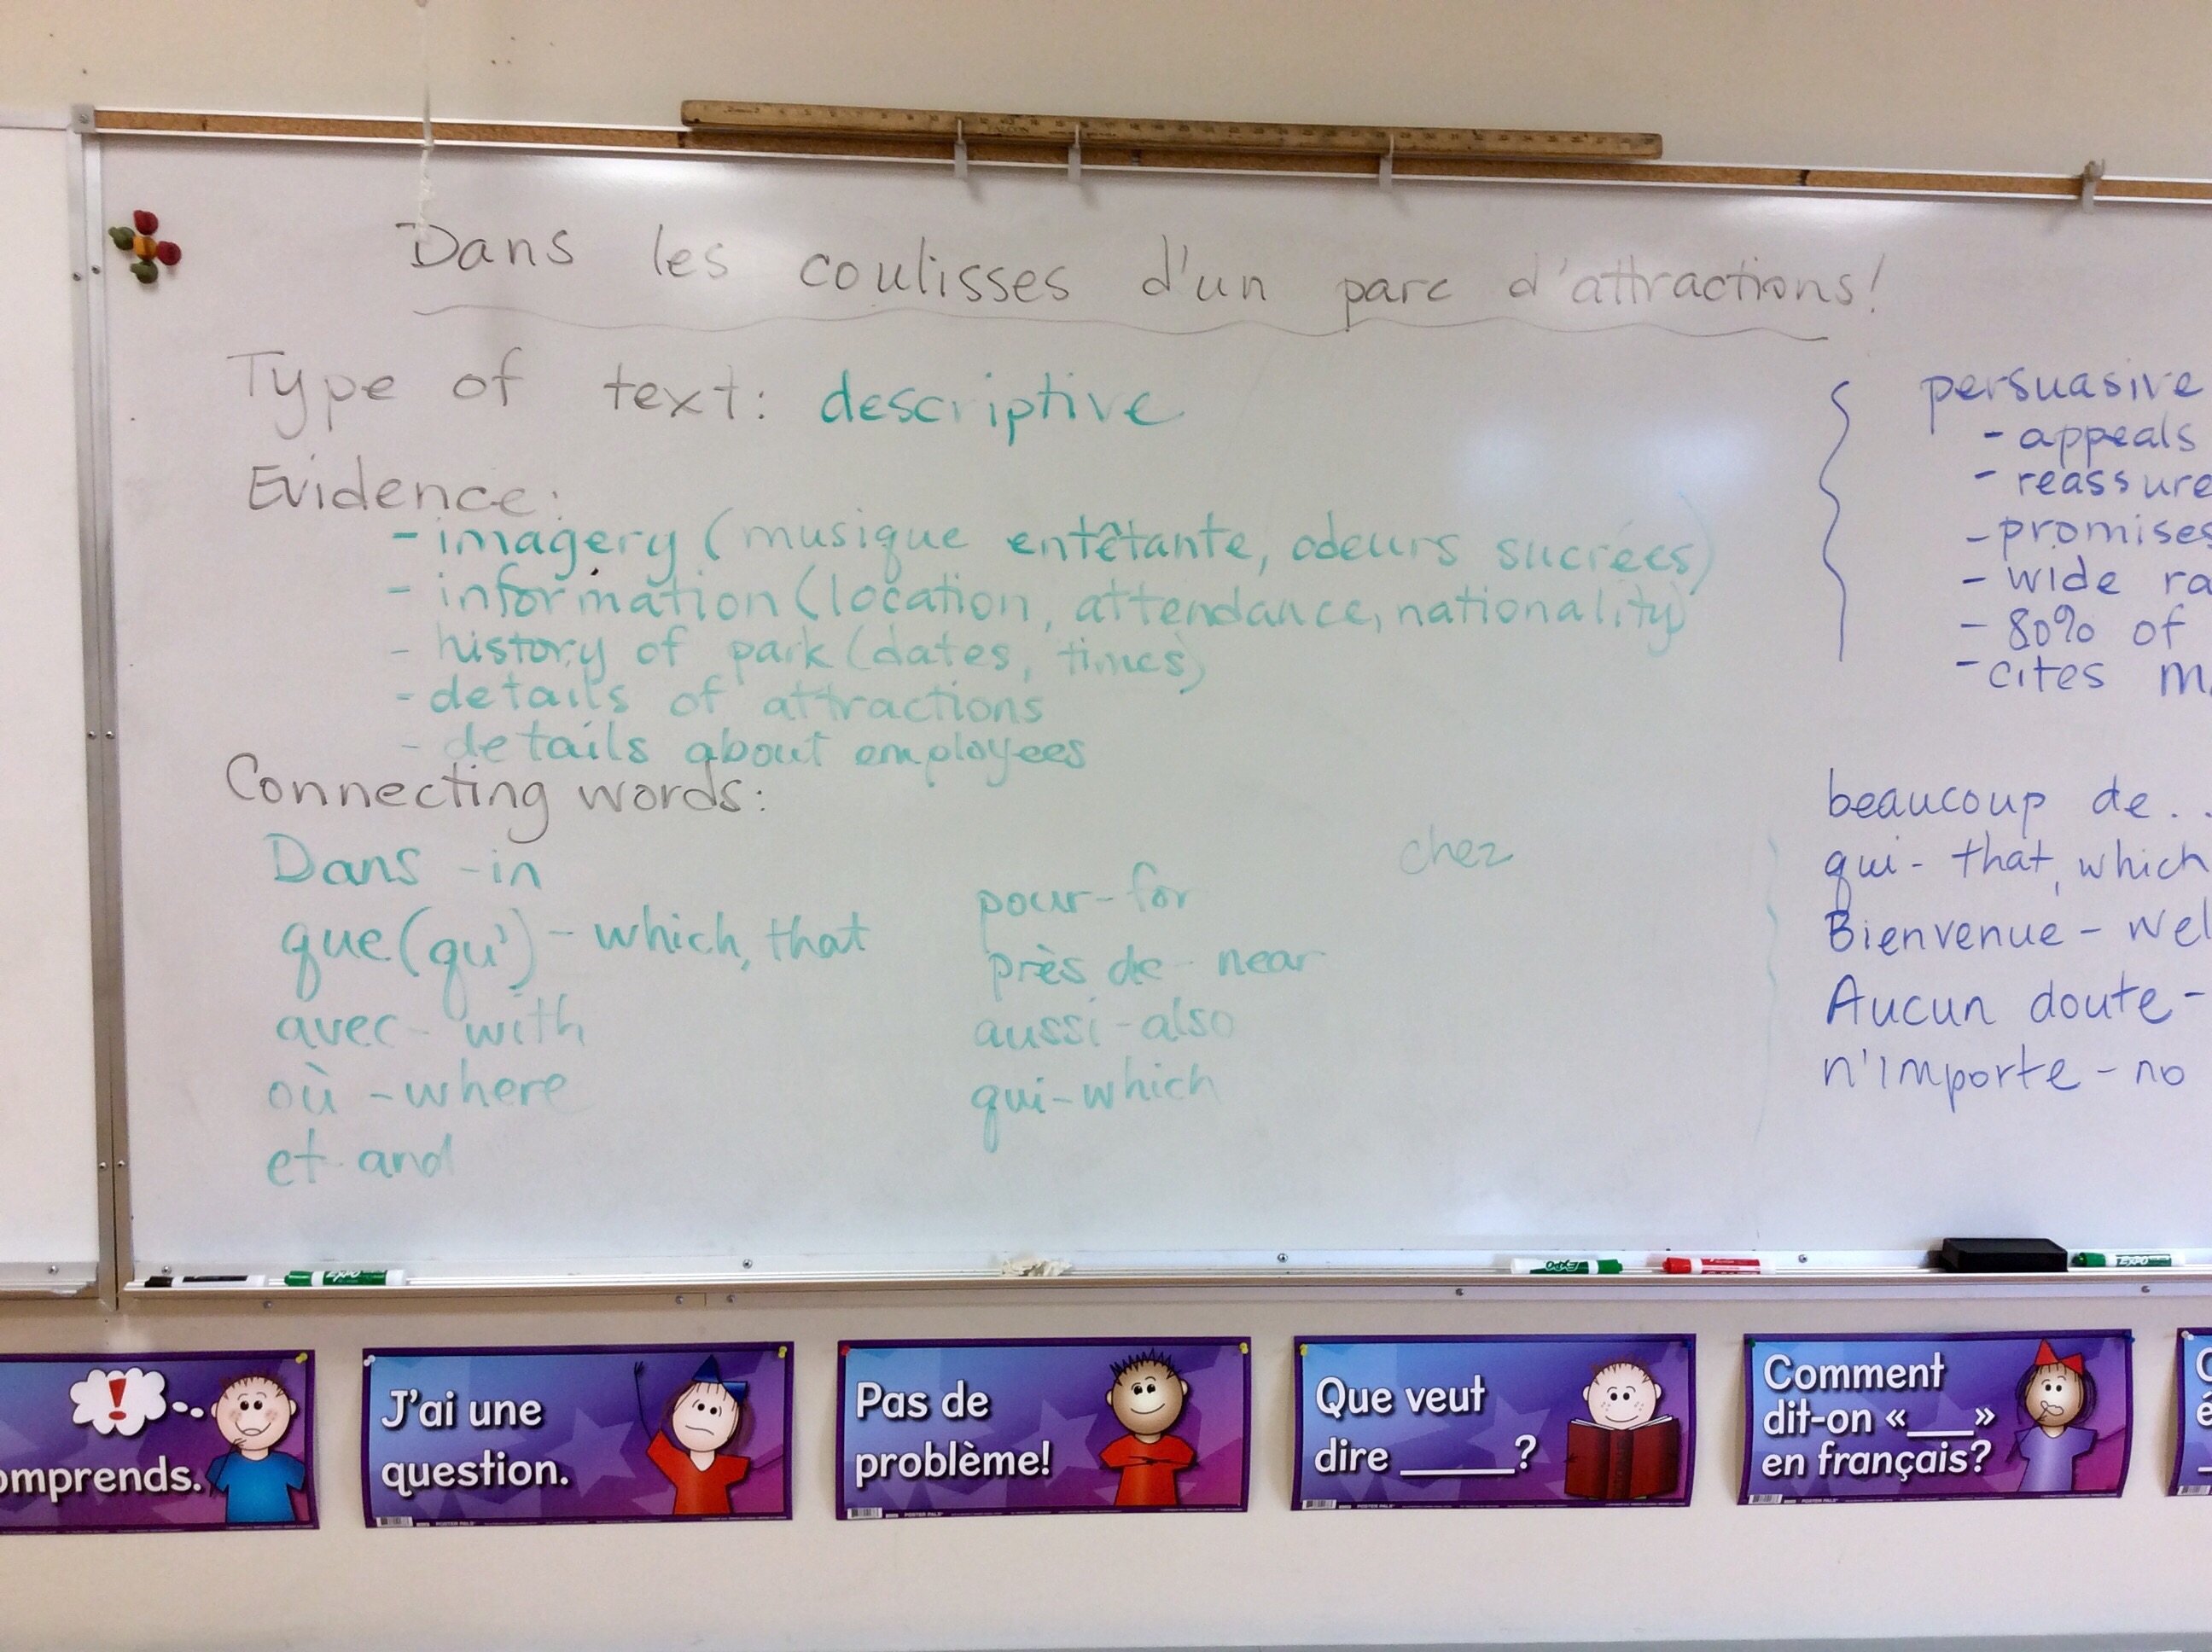 Dans les coulisses d'un parc d'attractions!
Type of text: descriptive
Evidence:
- imagery (musique entêtante, odeurs sucrées)
- information (location, attendance, nationality)
- history of park (dates, times)
- details of attractions
- details about employees
Connecting words:
Dans - in
que (qu') - which, that
avec - with
où - where
et - and
pour - for
près de - near
aussi - also
qui - which
chez
persuasive
- appeals
- reassure
- promises
- wide ra
- 80% of
- cites
beaucoup de..
qui - that, which
Bienvenue - wel
Aucun doute -
n'importe - no
EXPO
EXPO
EXPO
omprends.
J'ai une
question.
Pas de
problème!
Que veut
dire _____?
Comment
dit-on «___»
en français?